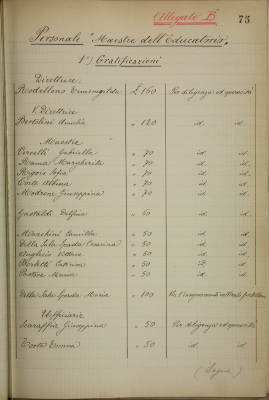 Allegato B
75
Personale "Maestre dell'Educatorio"
1°) Gratificazioni
Direttrice
Rodellono Ermengilda £ 160 Per diligenza ed operosità
V. Direttrice
Bertolini Amalia " 120 id. id.
Maestre "
Vercelli Gabriella " 70 id. id.
Rama Margherita " 70 id. id.
Rigois Sofia " 70 id. id.
Costa Albina " 70 id. id.
Modrone Giuseppina " 70 id. id.
Gastaldi Delfina " 60 id. id.
Marchini Camilla " 50 id. id.
Della Sala Spada Cesarina " 50 id. id.
Anglesio Vittoria " 50 id. id.
Borbotti Caterina " 50 id. id.
Pastore Maria " 50 id. id.
Della Sala Spada Maria " 100 Per l'insegnamento
Ufficiarie
Scaraffia Giuseppina " 50 Per diligenza ed operosità
Costa Emma " 50 id. id.
(Segue)